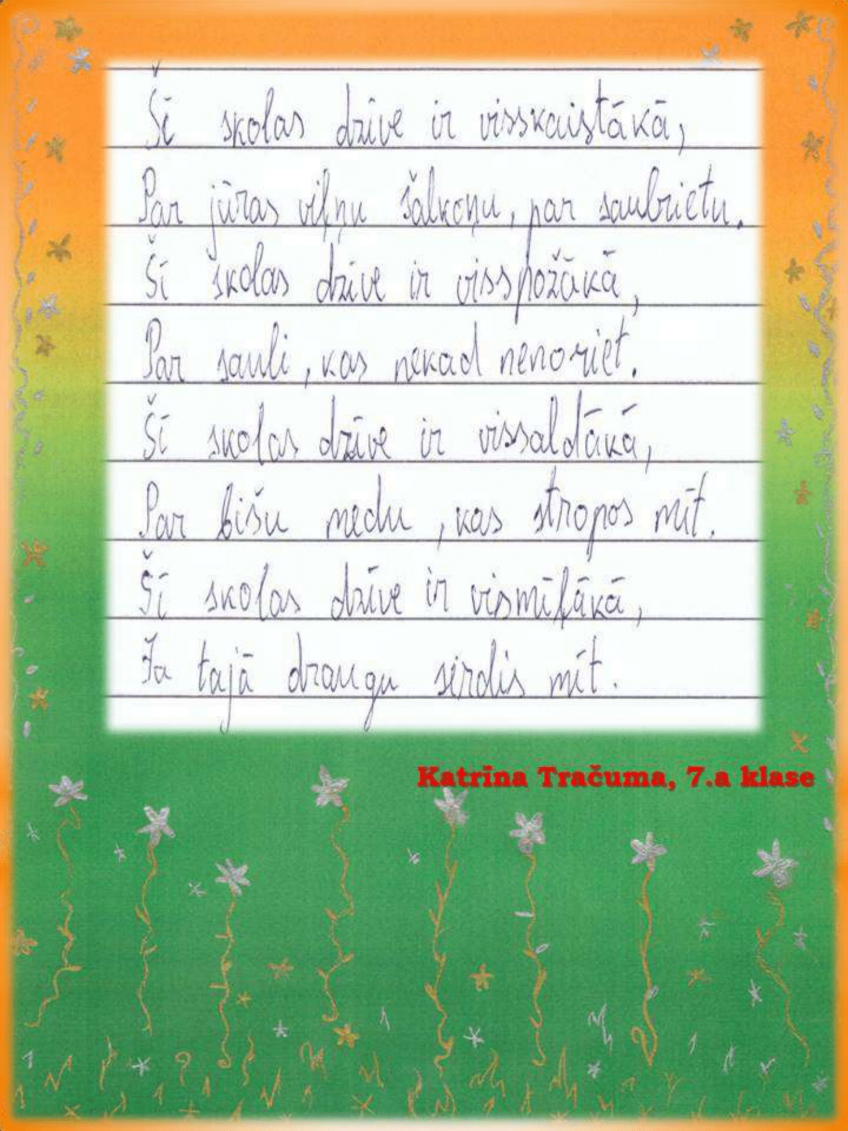 Šī skolas dzīve ir visskaistākā,
Par jūras viļņu šalkoņu, par saulrietu.
Šī skolas dzīve ir visspožākā,
Par sauli, kas nekad nenoriet.
Šī skolas dzīve ir vissaldākā,
Par bišu medu, kas stropos mīt.
Šī skolas dzīve ir vismīļākā,
Ja tajā draugu sirdis mīt.
Katrīna Tračuma, 7.a klase